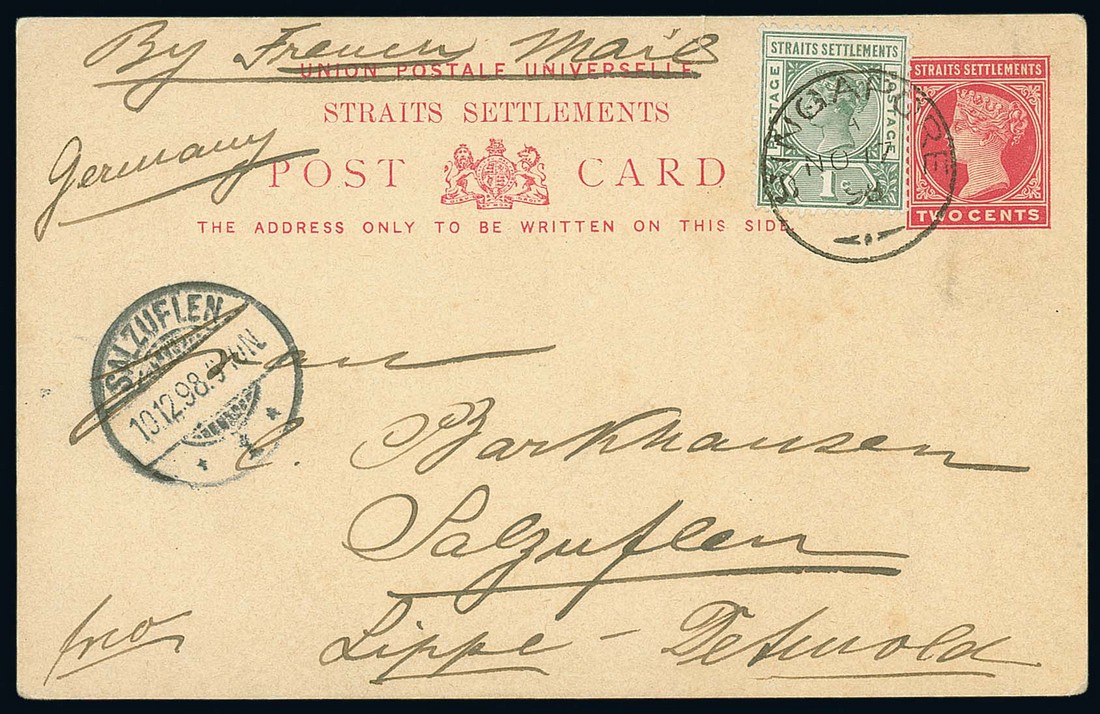 By French Mail
UNION POSTALE UNIVERSELLE
STRAITS SETTLEMENTS
Germany
POST CARD
THE ADDRESS ONLY TO BE WRITTEN ON THIS SIDE
STRAITS SETTLEMENTS
POSTAGE POSTAGE
1c
STRAITS SETTLEMENTS
TWO CENTS
SINGAPORE
NO
98
SALZUFLEN
10.12.98.
C. Barkhausen
Salzuflen
frco
Lippe - Detmold